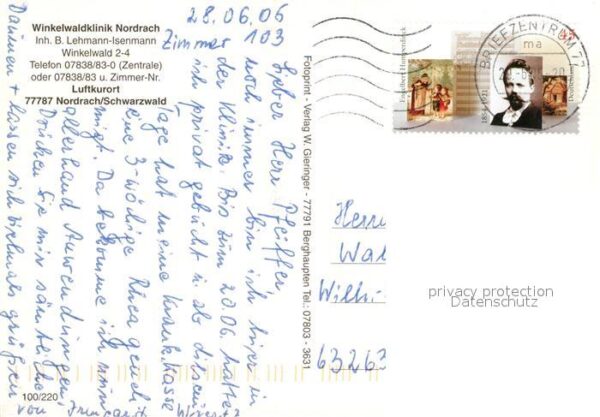 Winkelwaldklinik Nordrach
Inh. B. Lehmann-Isenmann
Winkelwald 2-4
Telefon 07838/83-0 (Zentrale)
oder 07838/83 u. Zimmer-Nr.
Luftkurort
77787 Nordrach/Schwarzwald
28.06.06
Zimmer 103
Lieber Herr Pfeiffer
noch immer bin ich hier in
der Klinik. Bis zum 20.06. hatte
ich privat gebucht u. ab diesem
Tage hat meine Krankenkasse
eine 3-wöchige Kur
Da bekomme ich nun
allerhand Anwendungen.
Drücken Sie mir sämtliche
Daumen + lassen sich vielmals grüßen
von
100/220
Fotoprint - Verlag W. Gieringer - 77791 Berghaupten Tel.: 07803 - 3631
Engelbert Humperdinck
1854-1921
45
BRIEFZENTRUM 77
ma
Herrn
Wal
Wilh
63263
privacy protection
Datenschutz